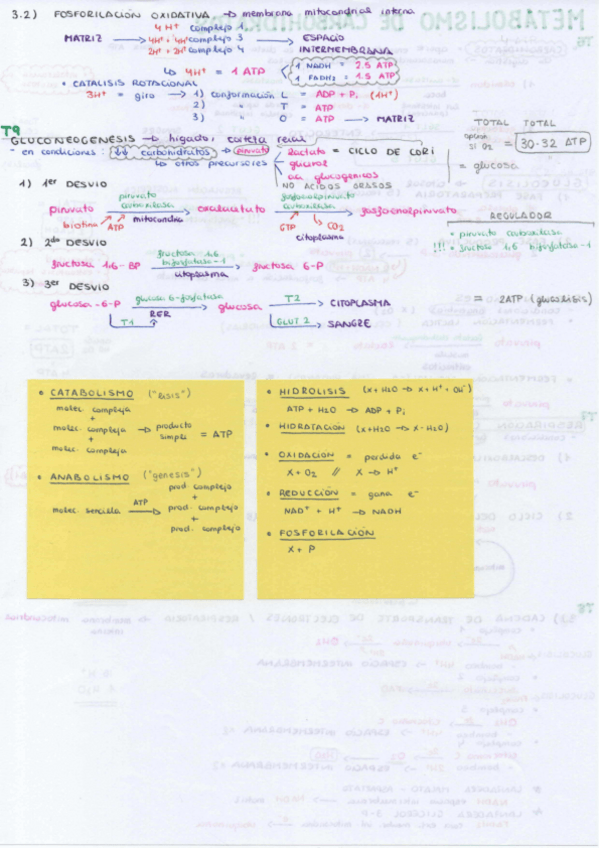 3.2) FOSFORILACIÓN OXIDATIVA → membrana mitocondrial interna
4H⁺ complejo 1
MATRIZ → 4H⁺ complejo 3 → ESPACIO INTERMEMBRANA
2H⁺ complejo 4
↳ 4H⁺ = 1 ATP
1 NADH = 2.5 ATP
1 FADH₂ = 1.5 ATP
• CATALISIS ROTACIONAL
3H⁺ = giro → 1) conformación L = ADP + Pi (4H⁺)
2) " T = ATP
3) " O = ATP → MATRIZ
TOTAL TOTAL
opción si O₂ = 30-32 ATP
= glucosa
= 2ATP (glucolisis)
T9
GLUCONEOGENESIS → hígado, corteza renal
- en condiciones: ↓↓ carbohidratos → pinvato
↳ otros precursores
lactato = CICLO DE CORI
glicerol
aa glucogenicos
NO ACIDOS GRASOS
1) 1er DESVIO
piruvato → oxalacetato → fosfoenolpiruvato
piruvato carboxilasa
biotina ATP mitocondria
fosfoenolpiruvato carboxilasa
GTP CO₂
citoplasma
REGULADOR
• piruvato carboxilasa
!!! • fructosa 1,6 bifosfatasa-1
2) 2do DESVIO
fructosa 1,6-BP → fructosa 6-P
fructosa 1,6 bifosfatasa-1
citoplasma
3) 3er DESVIO
glucosa-6-P → glucosa
glucosa 6-fosfatasa
RER
T1
T2 → CITOPLASMA
GLUT 2 → SANGRE
• CATABOLISMO ("lisis")
molec. compleja
+
molec. compleja → producto simple = ATP
+
molec. compleja
• ANABOLISMO ("genesis")
prod. complejo
+
molec. sencilla ATP → prod. complejo
+
prod. complejo
• HIDROLISIS (x + H₂O → x + H⁺ + OH⁻)
ATP + H₂O → ADP + Pi
• HIDRATACIÓN (x+H₂O → X-H₂O)
• OXIDACIÓN = perdida e⁻
X + O₂ // X → H⁺
• REDUCCIÓN = gana e⁻
NAD⁺ + H⁺ → NADH
• FOSFORILACIÓN
X + P